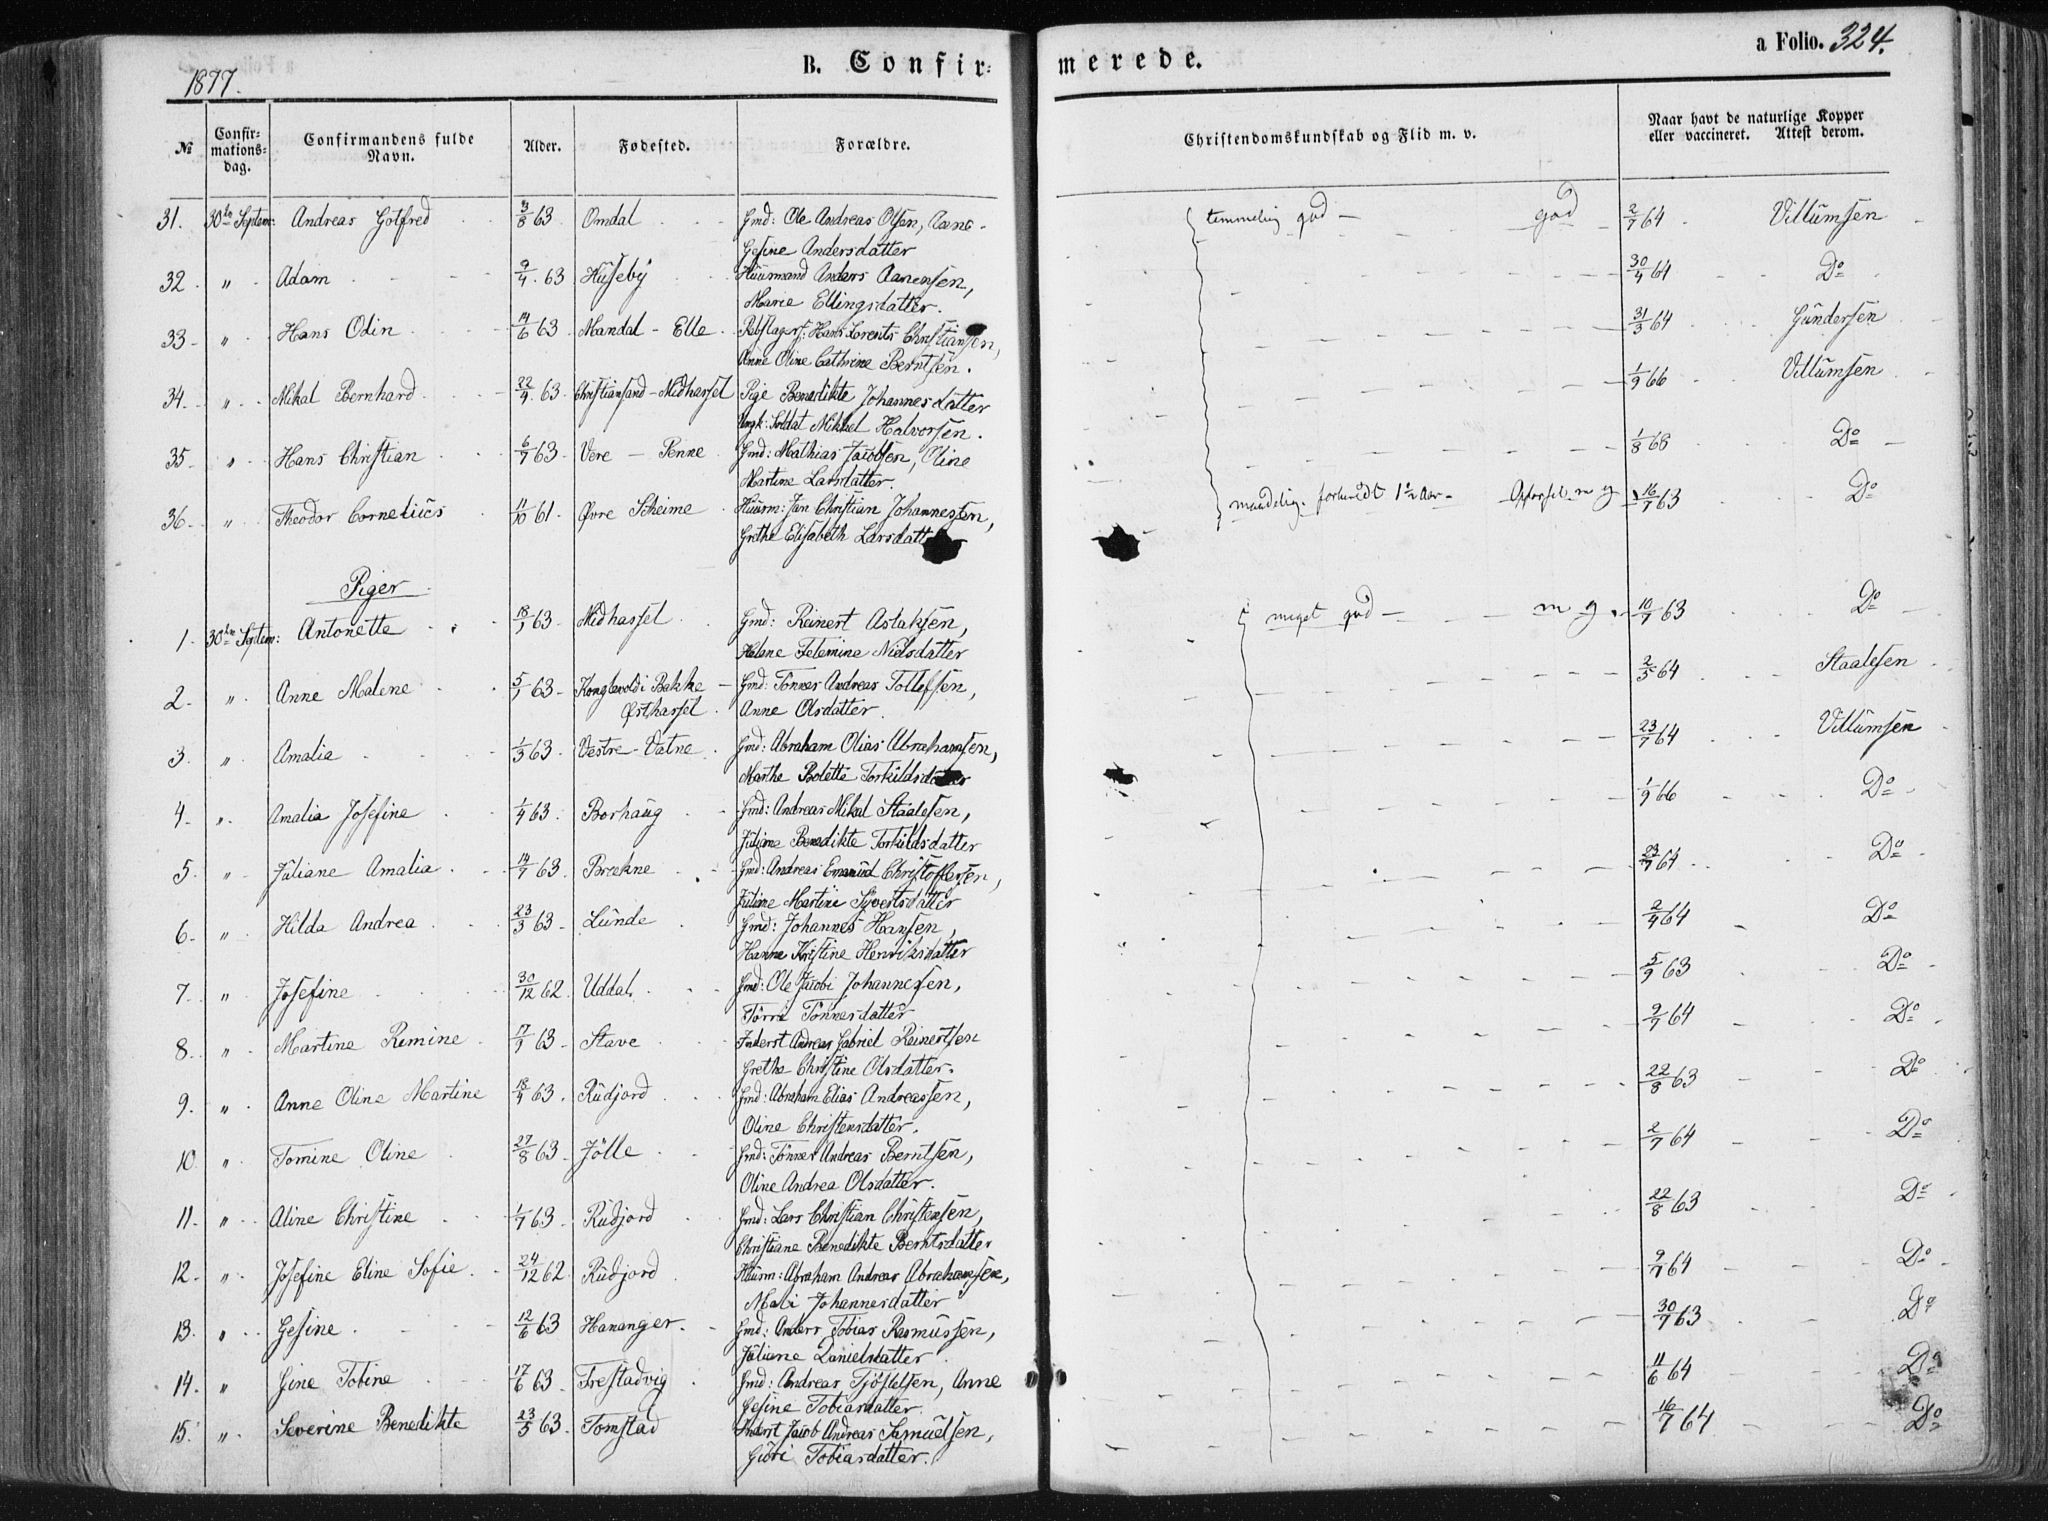 1877.
B. Confirmerede.
a Folio. 324.
№ Confirmationsdag. Confirmandens fulde Navn. Alder. Fødested. Forældre. Christendomskundskab og Flid m. v. Naar havt de naturlige Kopper eller vaccineret. Attest derom.
31. 30te Septem: Andreas Gotfred 3/8 63 Omdal Gmd: Ole Andreas Olsen, temmelig god — god 2/7 64 Villumsen
Gesine Andersdatter
32. " Adam 9/4 63 Huseby Huusmand Anders Aanensen, 30/4 64 Do
Marie Ellingsdatter.
33 " Hans Odin 14/6 63 Mandal - Elle Rebslagers: Hans Lorents Christiansen, 31/3 64 Gundersen
Anne Oline Cathrine Berntsen.
34. " Mikal Bernhard 22/4 63 Christiansand - Midhassel Pige Benedikte Johannesdatter 1/9 66 Villumsen
Ungk: Soldat Mikkel Halvorsen.
35 " Hans Christian 6/7 63 Vere - Penne Gmd: Mathias Jacobsen, Oline 1/8 68 Do
Martine Larsdatter.
36. " Theodor Cornelius 11/10 61 Øvre Skeime Huusm: Jen Christian Johannessen, maadelig. 16/7 63 Do
Grethe Elisabeth Larsdatt
Piger
1. 30te Septem: Antonette 18/1 63 Midhassel Gmd: Reinert Aslaksen, meget god — m g. 10/7 63 Do
Helene Telemine Nielsdatter
2. " Anne Malene 5/1 63 Konglevold i Bakke — Gmd: Tönnes Andreas Tollefsen, 2/5 64 Staalesen
Østhassel Anne Olsdatter.
3. " Amalia 1/3 63 Vestre-Vatne Gmd: Abraham Olias Abrahamsen, 23/7 64 Villumsen
Marthe Bolette Torkildsdatter
4. " Amalia Josefine 1/4 63. Borhaug Gmd: Andreas Mikal Staalesen, 1/9 66 Do
Juliane Benedikte Torkildsdatter
5. " Juliane Amalia 14/7 63. Brekne Gmd: Andreas Emanuel Christoffersen, 23/7 64 Do
Juliane Martine Syvertsdatter
6. " Hilda Andrea 23/3 63 Lunde Gmd: Johannes Hansen, 2/4 64 Do
Hanne Kristine Henriksdatter
7. " Josefine 30/12 62. Uddal. Gmd: Ole Jacobi Johannesen, 5/9 63 Do
Törri Tönnesdatter
8. " Martine Remine 17/1 63 Stave Inderst Andreas Gabriel Reinertsen 2/7 64 Do
Grethe Christine Olsdatter.
9. " Anne Oline Martine 18/4 63. Rudjord Gmd: Abraham Elias Andreassen, 22/8 63 Do
Oline Christensdatter.
10. " Tomine Oline 27/8 63 Jölle Gmd: Tönnes Andreas Berntsen, 2/7 64 Do
Oline Andrea Olsdatter.
11. " Aline Christine 1/7 63 Rudjord Gmd: Lars Christian Christensen, 22/8 63 Do
Christiane Benedikte Berntsdatter
12. " Josefine Eline Sofie 24/12 62 Rudjord Huusm: Abraham Andreas Abrahamsen, 9/7 64 Do
Mali Johannesdatter
13. " Gesine 12/6 63 Hananger. Gmd: Anders Tobias Rasmussen, 30/7 63 Do
Juliane Danielsdatter
14. " Gine Tobine 17/6 63 Frestadvig Gmd: Andreas Tjöstelsen, Anne 11/6 64 Do
Gesine Tobiasdatter.
15. " Severine Benedikte 23/5 63. Tomstad Inderst Jacob Andreas Samuelsen, 16/7 64 Do
Giöri Tobiasdatter.